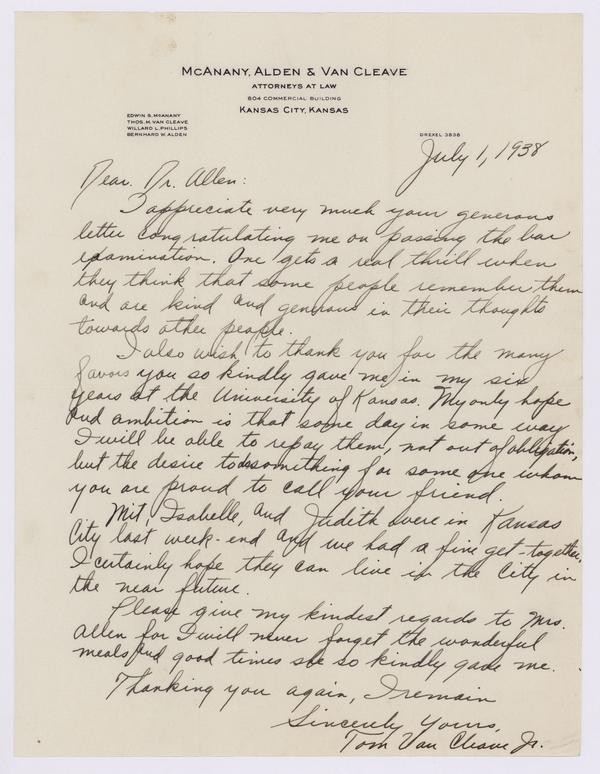 McANANY, ALDEN & VAN CLEAVE
ATTORNEYS AT LAW
804 COMMERCIAL BUILDING
KANSAS CITY, KANSAS
EDWIN S. McANANY
THOS. M. VAN CLEAVE
WILLARD L. PHILLIPS
BERNHARD W. ALDEN
DREXEL 3838
July 1, 1938
Dear Dr. Allen:
I appreciate very much your generous
letter congratulating me on passing the bar
examination. One gets a real thrill when
they think that some people remember them
and are kind and generous in their thoughts
towards other people.
I also wish to thank you for the many
favors you so kindly gave me in my six
years at the University of Kansas. My only hope
and ambition is that some day in some way
I will be able to repay them, not out of obligation,
but the desire to do something for some one whom
you are proud to call your friend.
Mit, Isabelle, and Judith were in Kansas
City last week-end and we had a fine get-together.
I certainly hope they can live in the City in
the near future.
Please give my kindest regards to Mrs.
Allen for I will never forget the wonderful
meals and good times she so kindly gave me.
Thanking you again, I remain
Sincerely Yours,
Tom Van Cleave Jr.